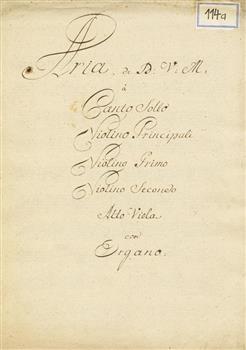 114a
Aria, de B: V: M.
à
Canto Solto
Violino Principali
Violino Primo
Violino Secondo
Alto Viola
con
Organo.